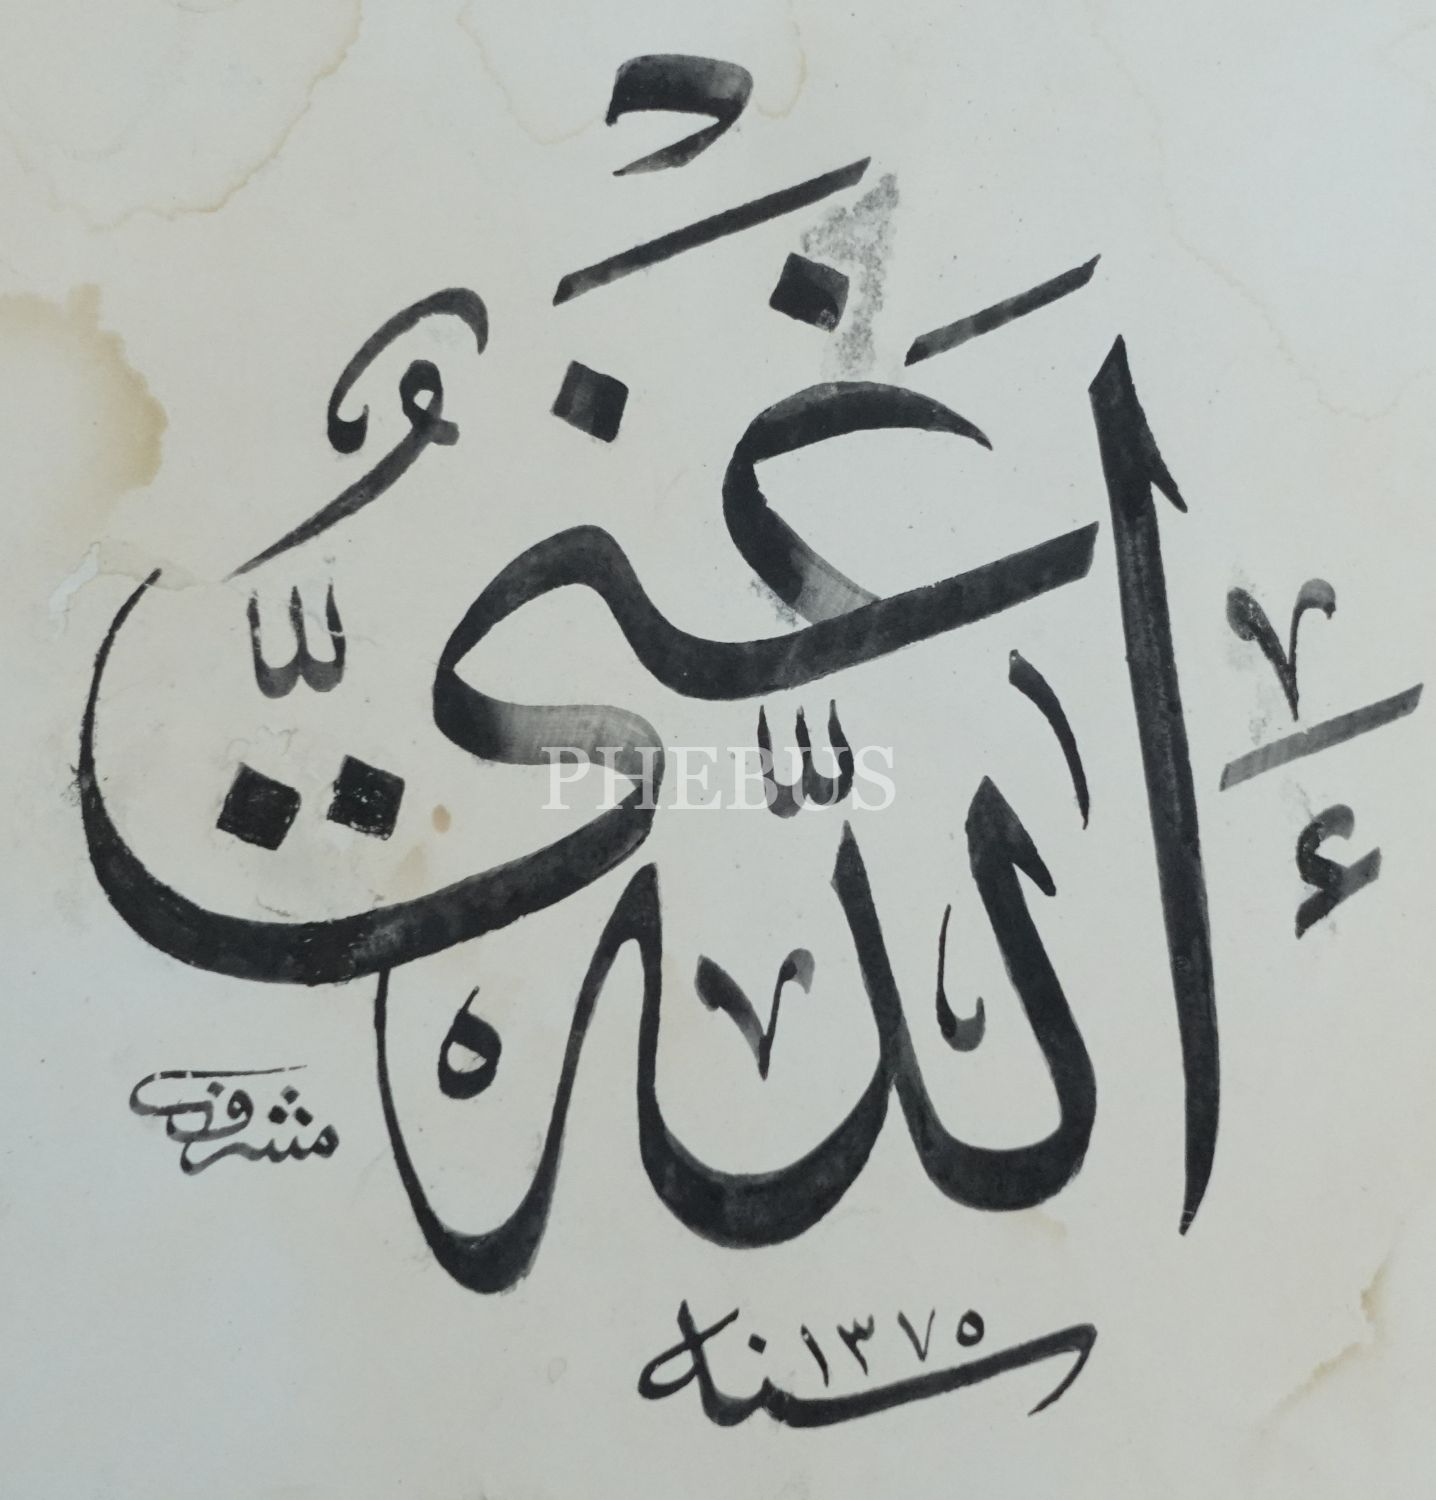 اَللّٰهُ غَنِيٌّ
مشرف
سنه ١٣٧٥
PHEBUS